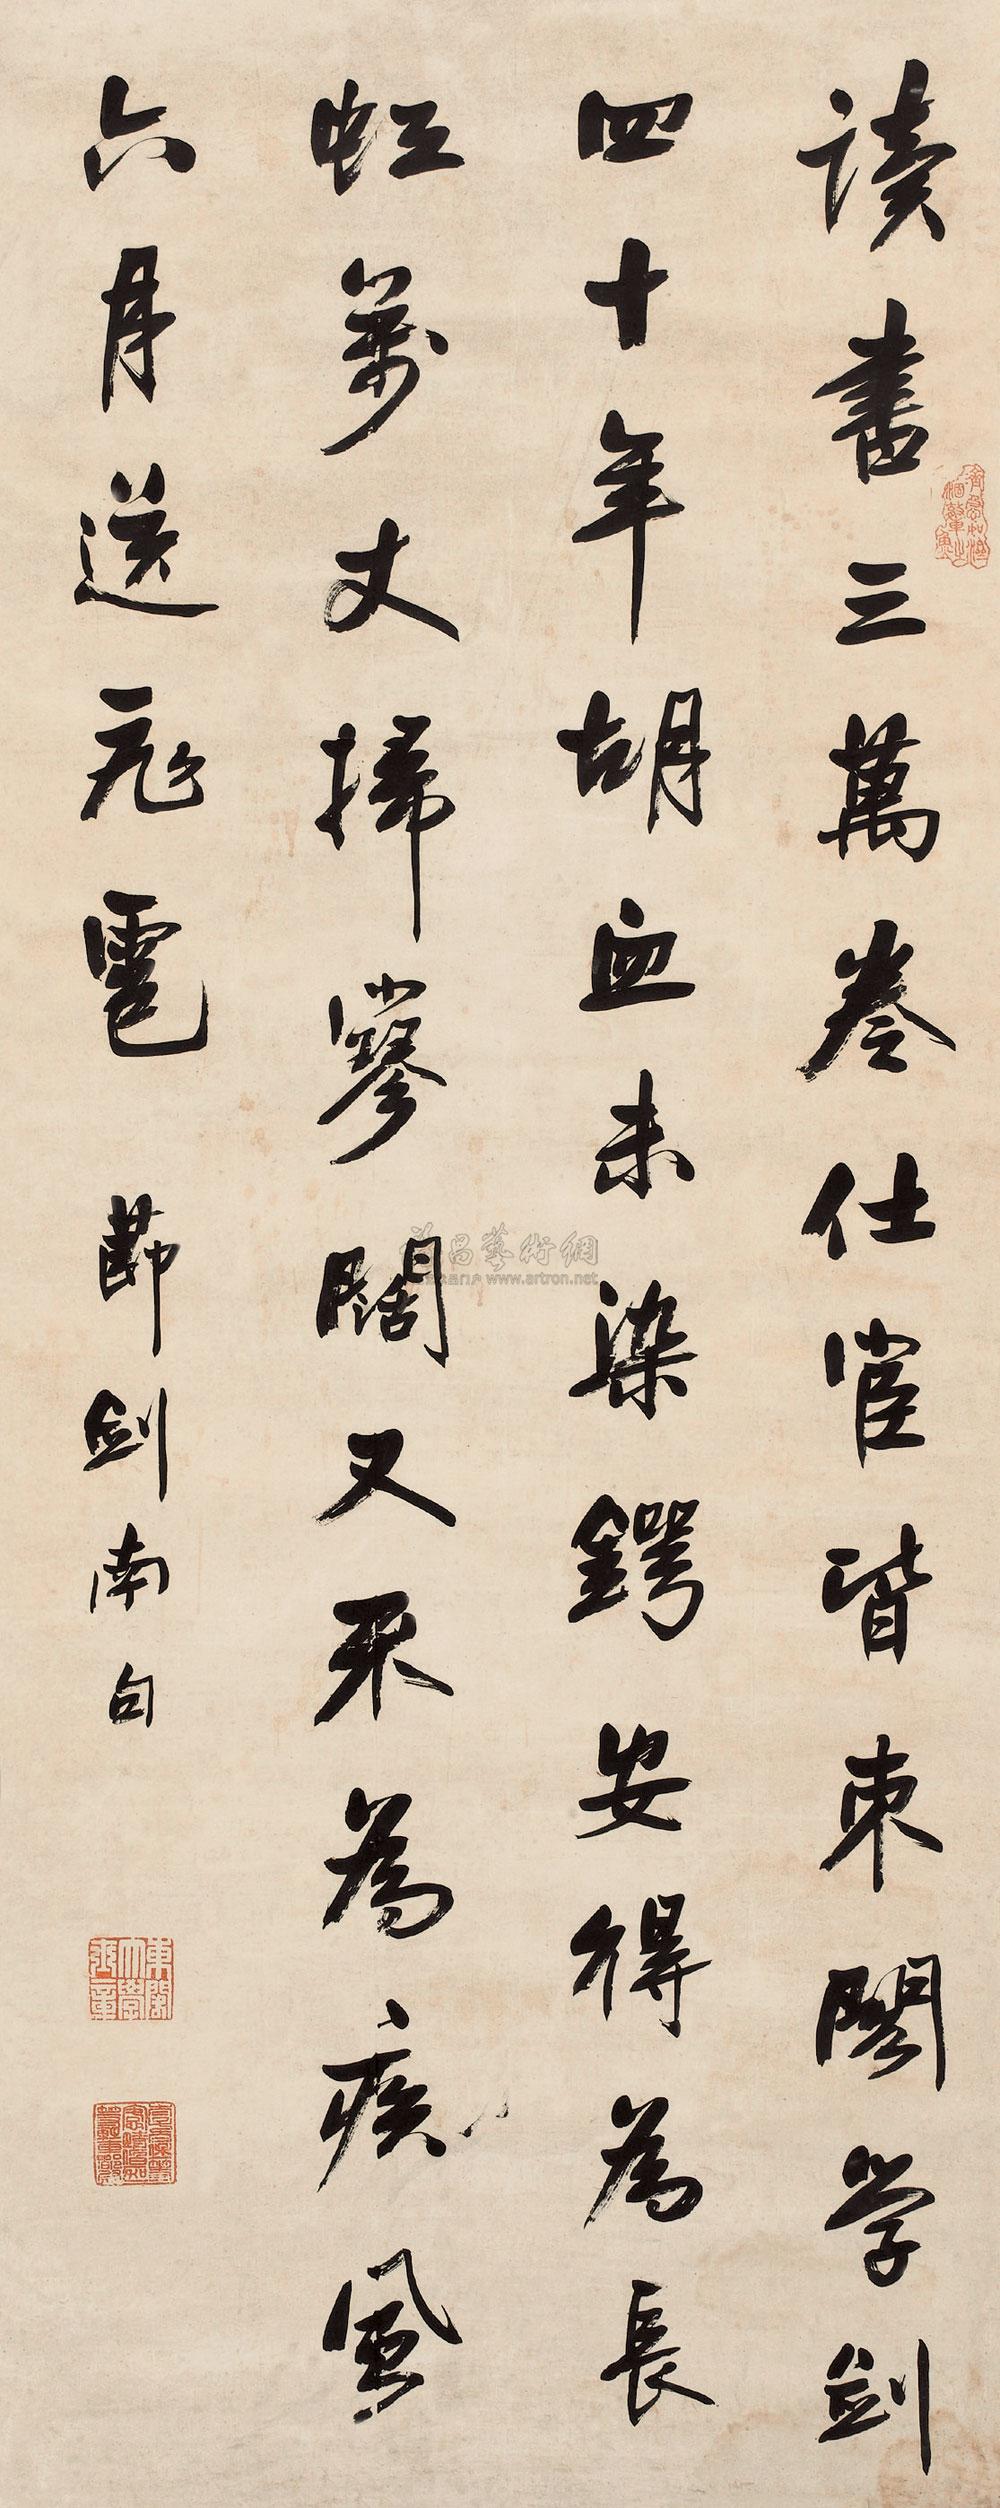 讀書三萬卷仕宦皆束閣学剑
四十年胡血未染鍔安得為長
虹萬丈掃寥闊又不為疾風
六月送飛雹 節剑南句
雅昌藝術網
www.artron.net